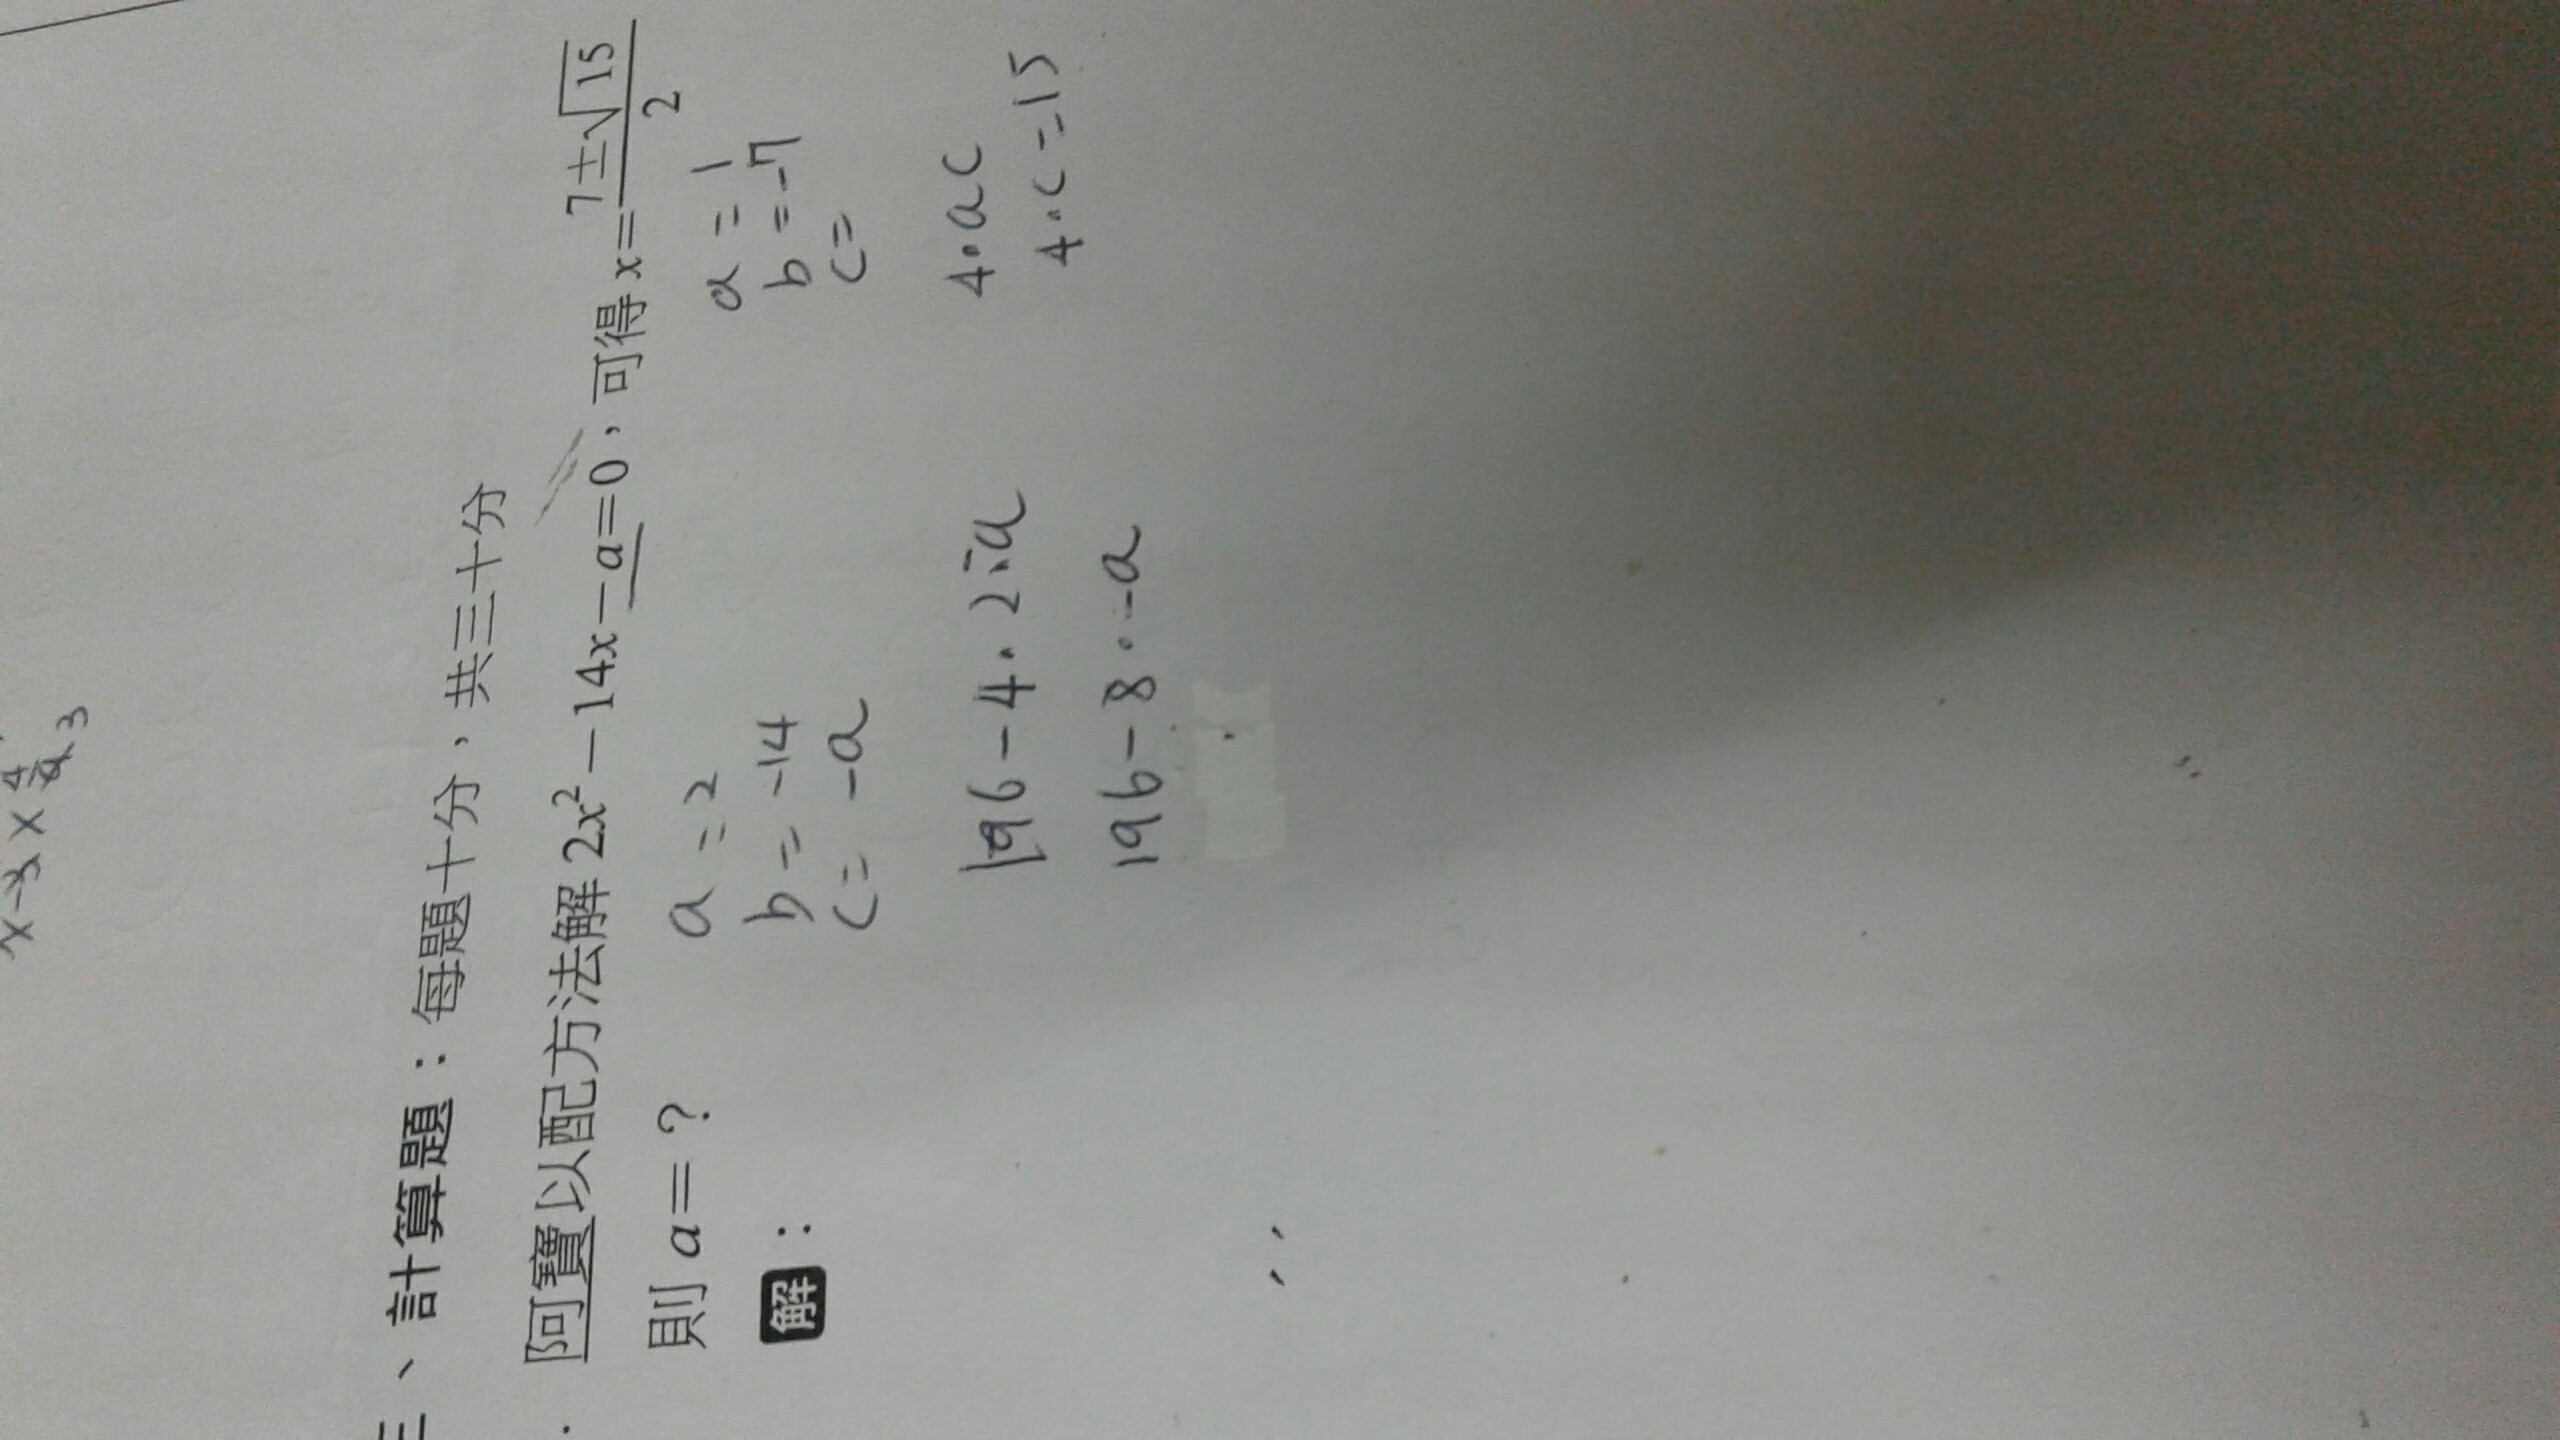 x-3 x
4
3
三、計算題：每題十分，共三十分
. 阿寶以配方法解 2x²－14x－a＝0，可得 x＝(7±√15)/2
則 a＝？
解：
a = 2
b = -14
c = -a
196 - 4 · 2 · -a
196 - 8 · -a
a = 1
b = -7
c =
4·ac
4·c = 15